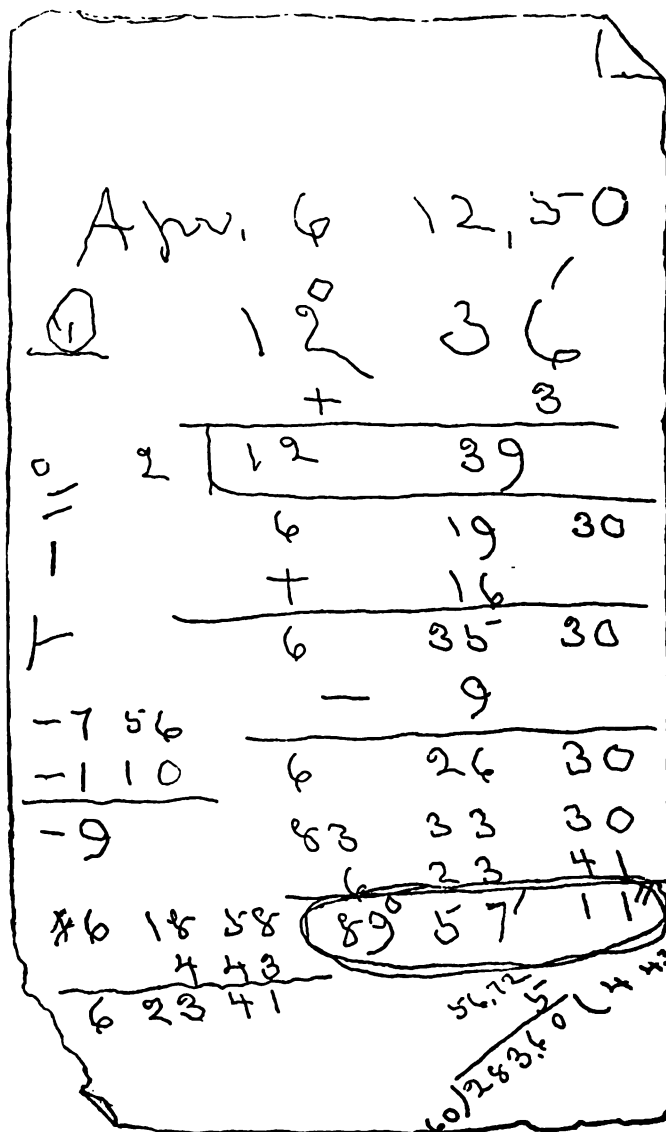 Apr. 6 12,50
12° 36'
+ 3
2 12 39
6 19 30
+ 16
6 35 30
- 9
-7 56
-1 10 6 26 30
-9 83 33 30
6 23 41
6 18 58 89° 57' 11"
4 43
6 23 41
56,72
5
60)283,60(4 43